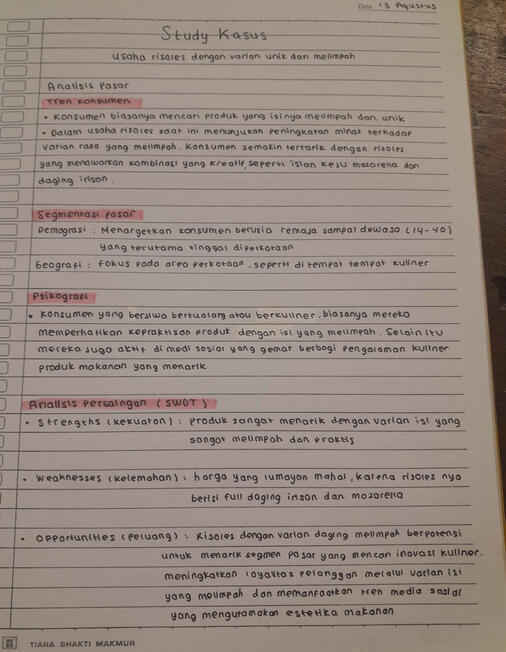 Date 13 Agustus
Study Kasus
Usaha risoles dengan varian unik dan melimpah
Analisis pasar
Tren konsumen
• Konsumen biasanya mencari produk yang isinya melimpah dan unik
• Dalam usaha risoles saat ini menunjukan peningkatan minat terhadap
varian rasa yang melimpah. Konsumen semakin tertarik dengan risoles
yang menawarkan kombinasi yang kreatif, seperti isian keju mozarella dan
daging irison.
Segmentasi pasar
Demografi : Menargetkan konsumen berusia remaja sampai dewasa (14-40)
yang terutama tinggal diperkotaan
Geografi : fokus pada area perkotaan, seperti di tempat tempat kuliner
Psikografi
• Konsumen yang berjiwa bertualang atau berkuliner, biasanya mereka
memperhatikan kepraktisan produk dengan isi yang melimpah. Selain itu
mereka juga aktif di medi sosial yang gemar berbagi pengalaman kuliner
produk makanan yang menarik
Analisis Persaingan (SWOT)
• Strengths (kekuatan) : produk sangat menarik dengan varian isi yang
sangat melimpah dan praktis
• Weaknesses (kelemahan) : harga yang lumayan mahal, karena risoles nya
berisi full daging irison dan mozarella
• Opportunities (peluang) : Risoles dengan varian daging melimpah berpotensi
untuk menarik segmen pasar yang mencari inovasi kuliner.
meningkatkan loyalitas pelanggan melalui varian isi
yang melimpah dan memanfaatkan tren media sosial
yang mengutamakan estetika makanan
TIARA SHAKTI MAKMUR